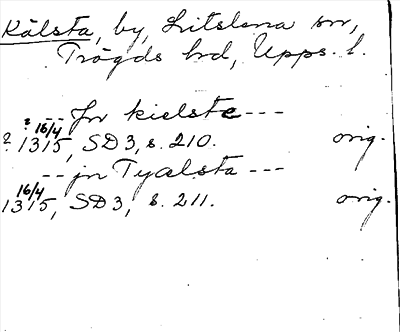 Kälsta, by, Litslena sn,
Trögds hd, Upps. l.
? -- Jn kielste ---
? 16/4 1315, SD 3, s. 210. orig.
-- jn Tyælsta ---
16/4 1315, SD 3, s. 211. orig.